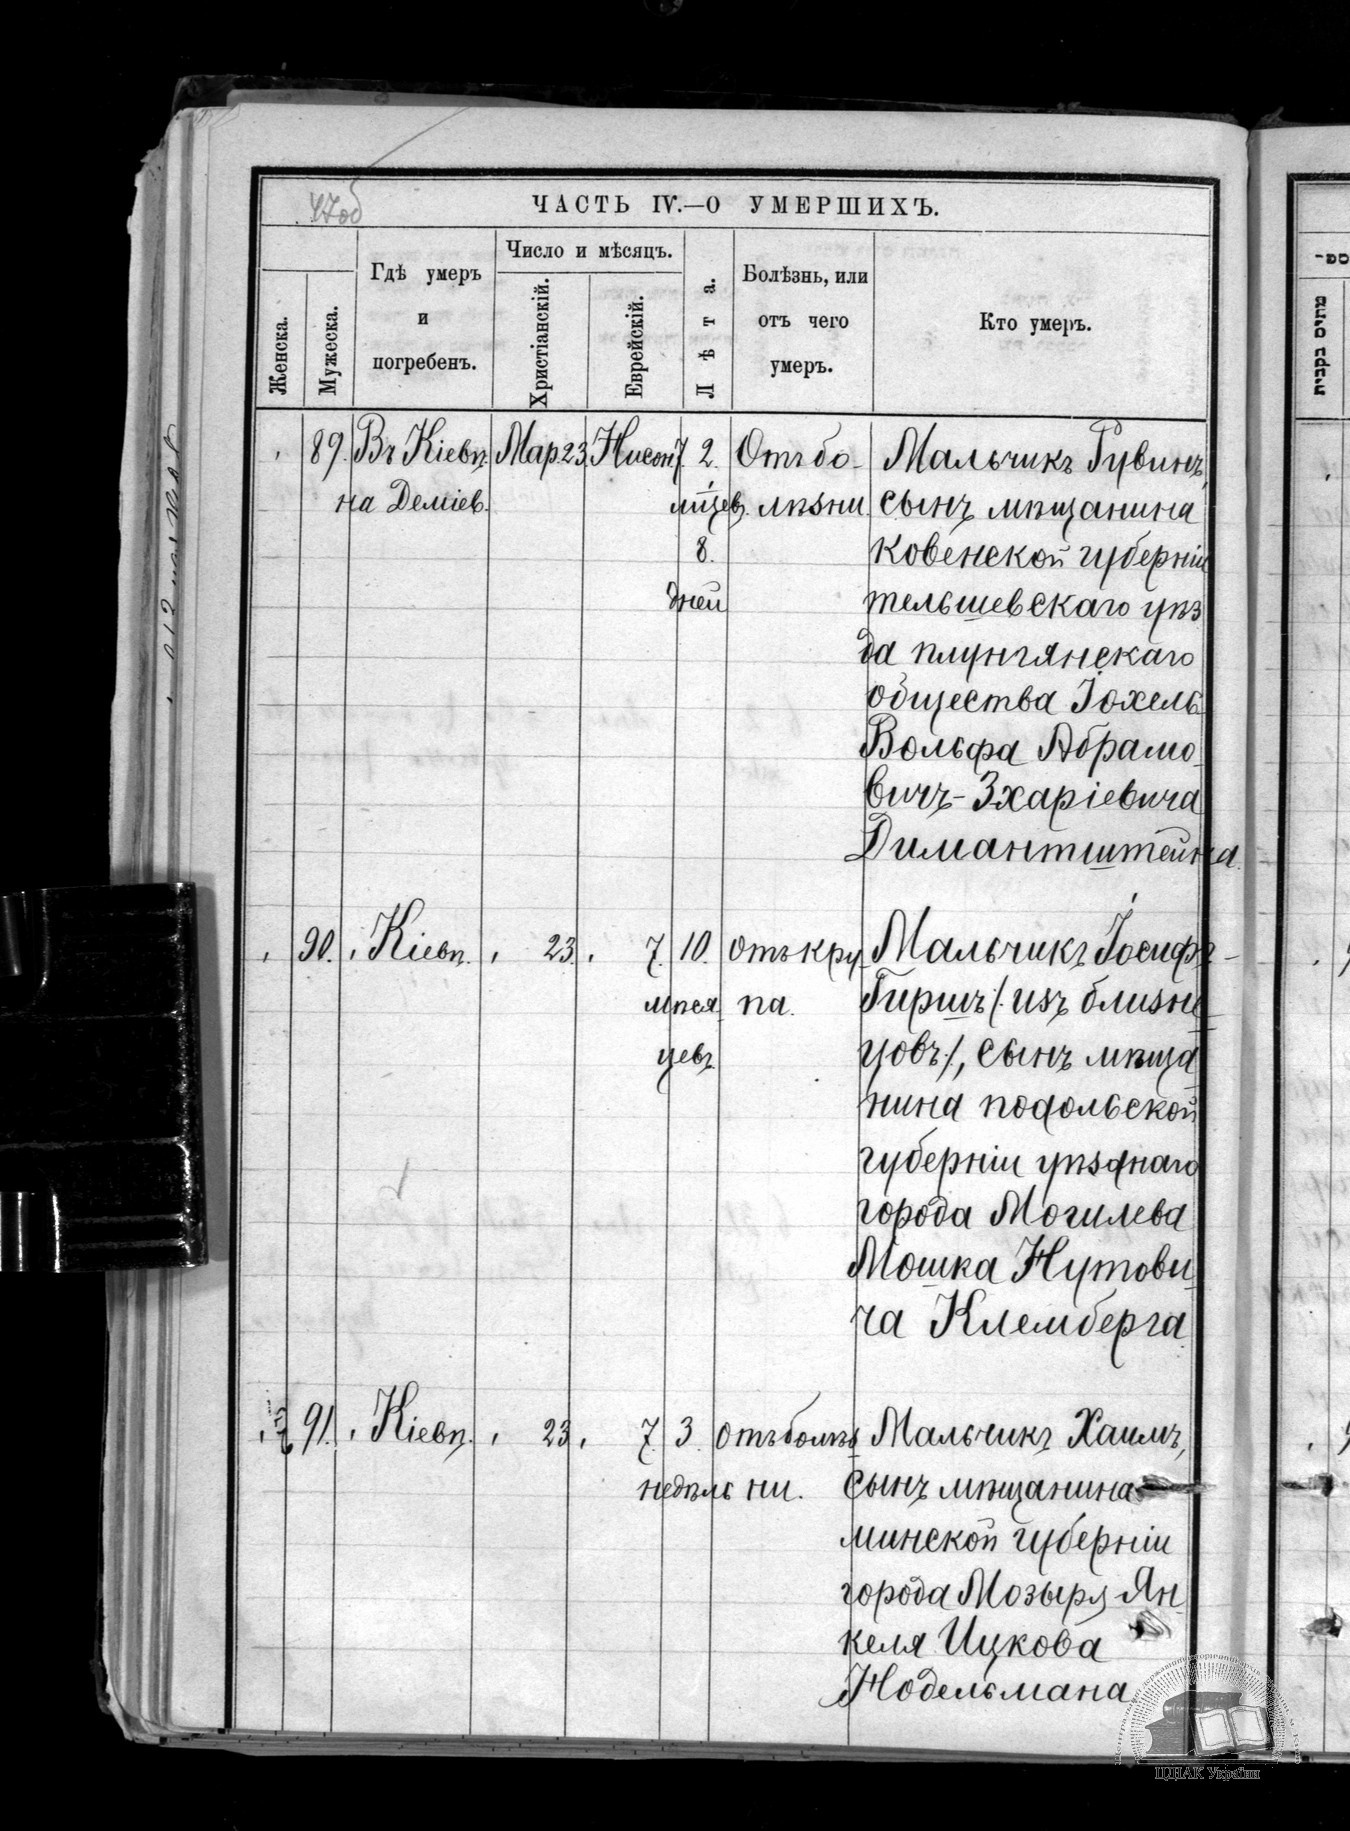 47об
ЧАСТЬ IV.—О УМЕРШИХЪ.
Женска.
Мужеска.
Гдѣ умеръ
и
погребенъ.
Число и мѣсяцъ.
Христіанскій.
Еврейскій.
Лѣта.
Болѣзнь, или
отъ чего
умеръ.
Кто умеръ.
89. Въ Кіевѣ Мар. 23. Нисон 7. 2. Отъ бо- Мальчикъ Рувинъ,
на Деміев. лѣзни сынъ мѣщанина
8. ковенской губерніи
дней тельшевскаго уѣз
да плунгянскаго
общества Іохель
Вольфа Абрамо
вичъ-Зхаріевича
Димантштейна.
90. Кіевѣ. 23. 7. 10. отъ кру Мальчикъ Іосифъ-
мѣся па. Гиршъ /: изъ близне
цевъ цовъ:/, сынъ мѣща
нина подольской
губерніи уѣзднаго
города Могилева
Мошка Нутови
ча Клемберга
91. Кіевѣ. 23. 7. 3. отъ болѣз Мальчикъ Хаимъ,
недѣль ни. сынъ мѣщанина
минской губерніи
города Мозыря Ян
келя Ицкова
Нодельмана
ЦДІАК України